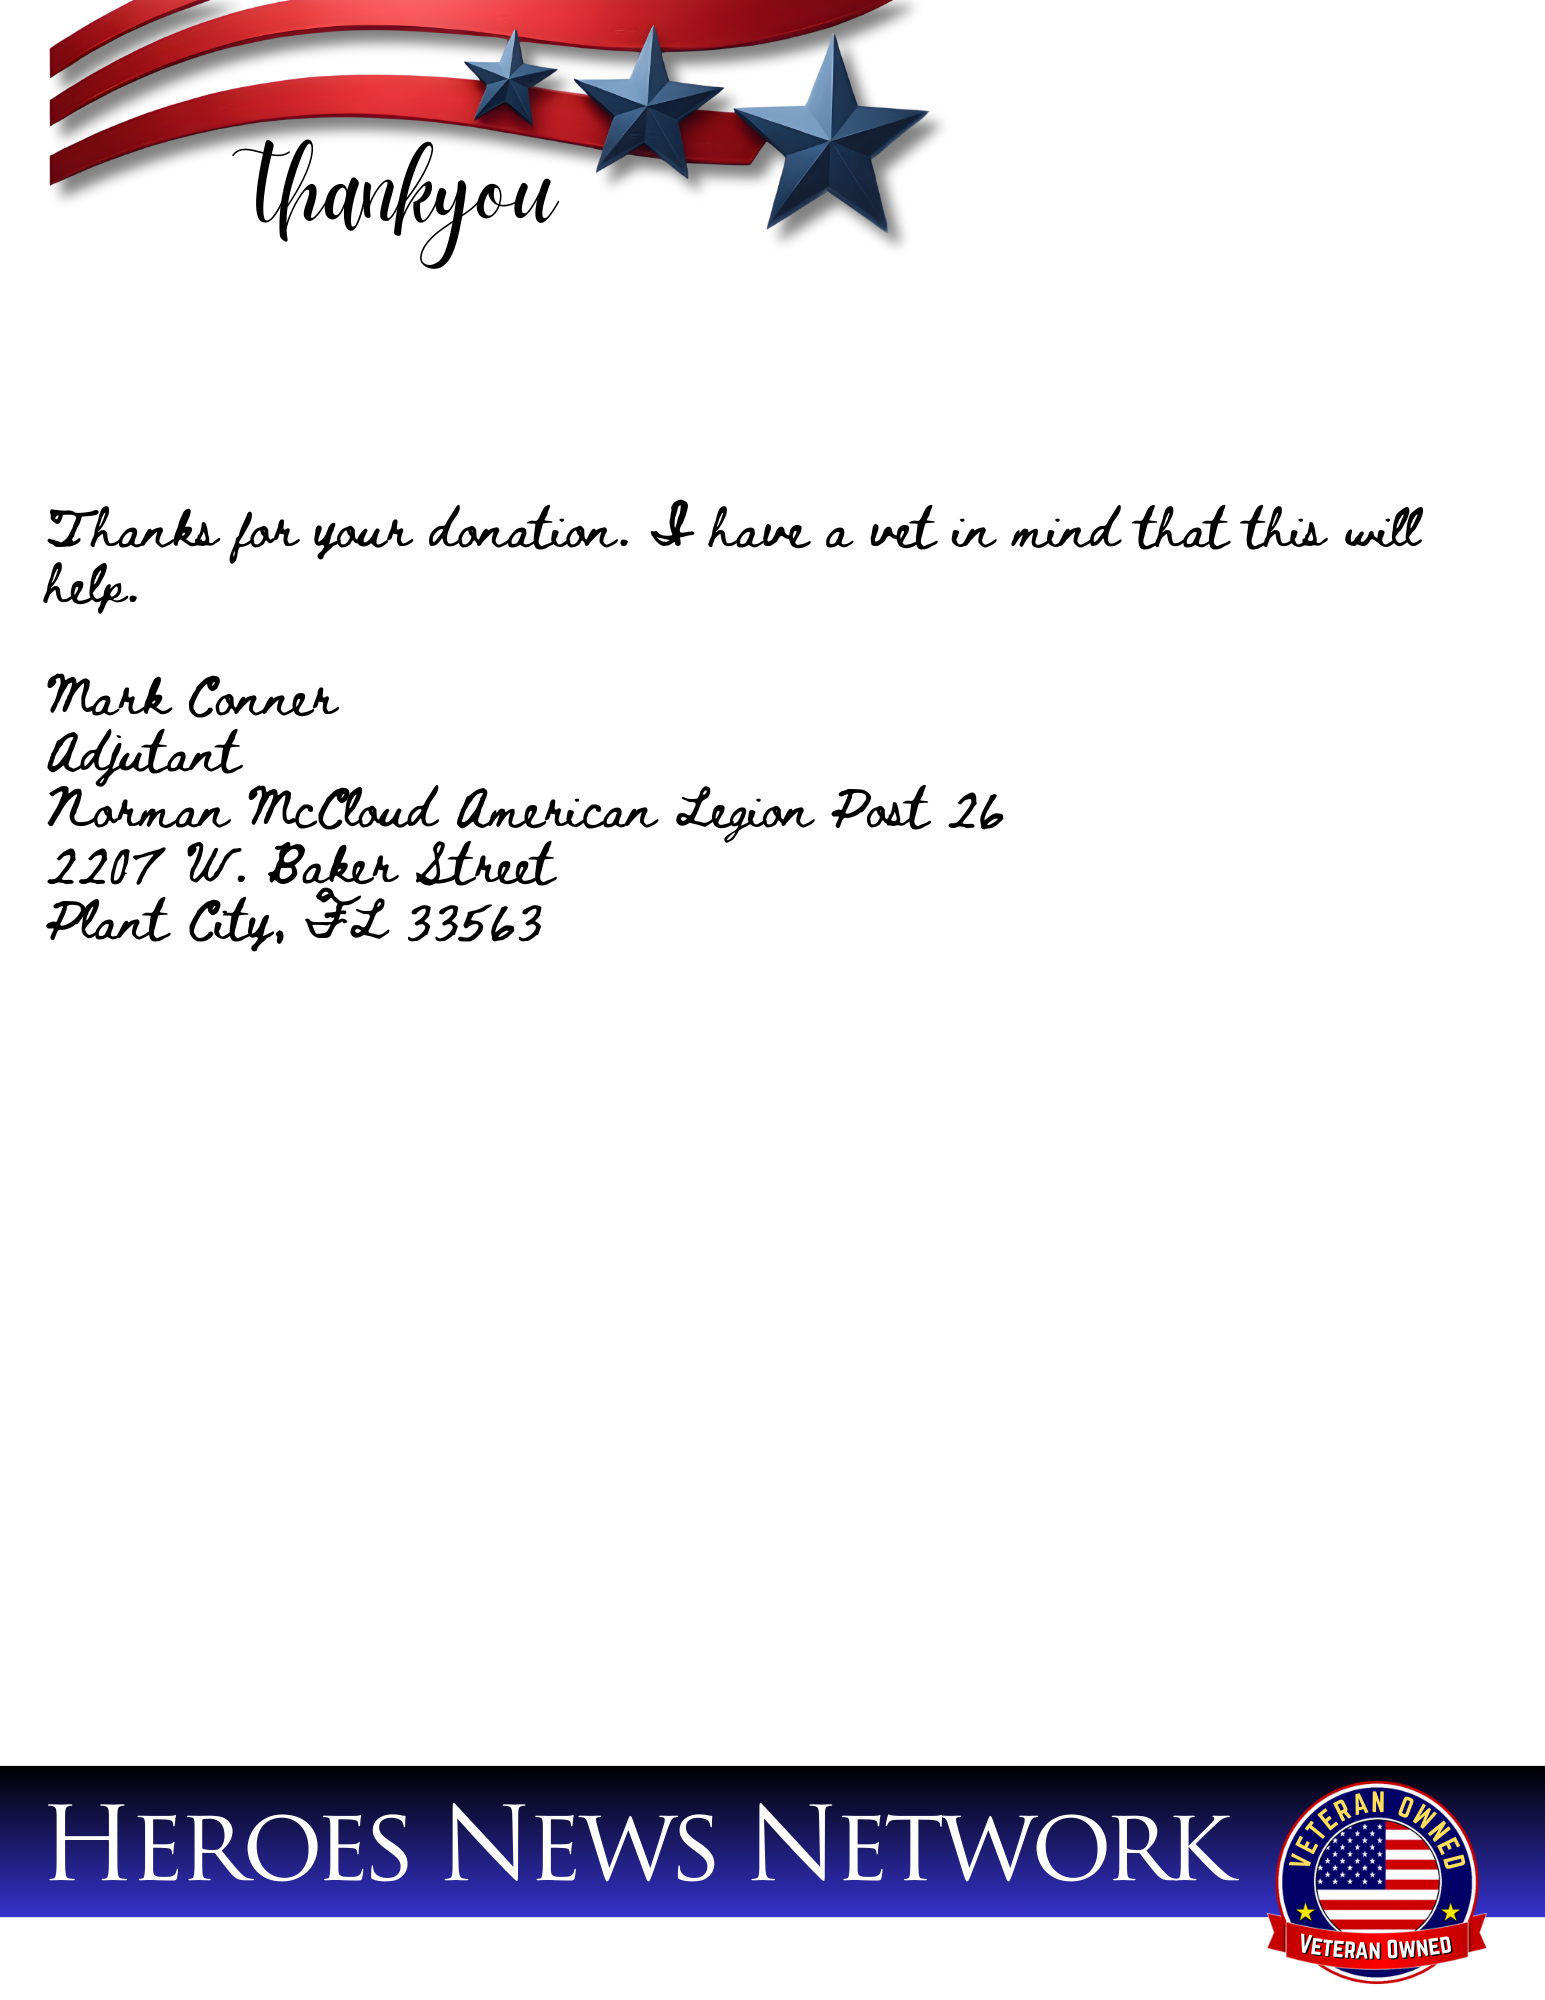 thankyou
Thanks for your donation. I have a vet in mind that this will
help.
Mark Conner
Adjutant
Norman McCloud American Legion Post 26
2207 W. Baker Street
Plant City, FL 33563
HEROES NEWS NETWORK
VETERAN OWNED
VETERAN OWNED